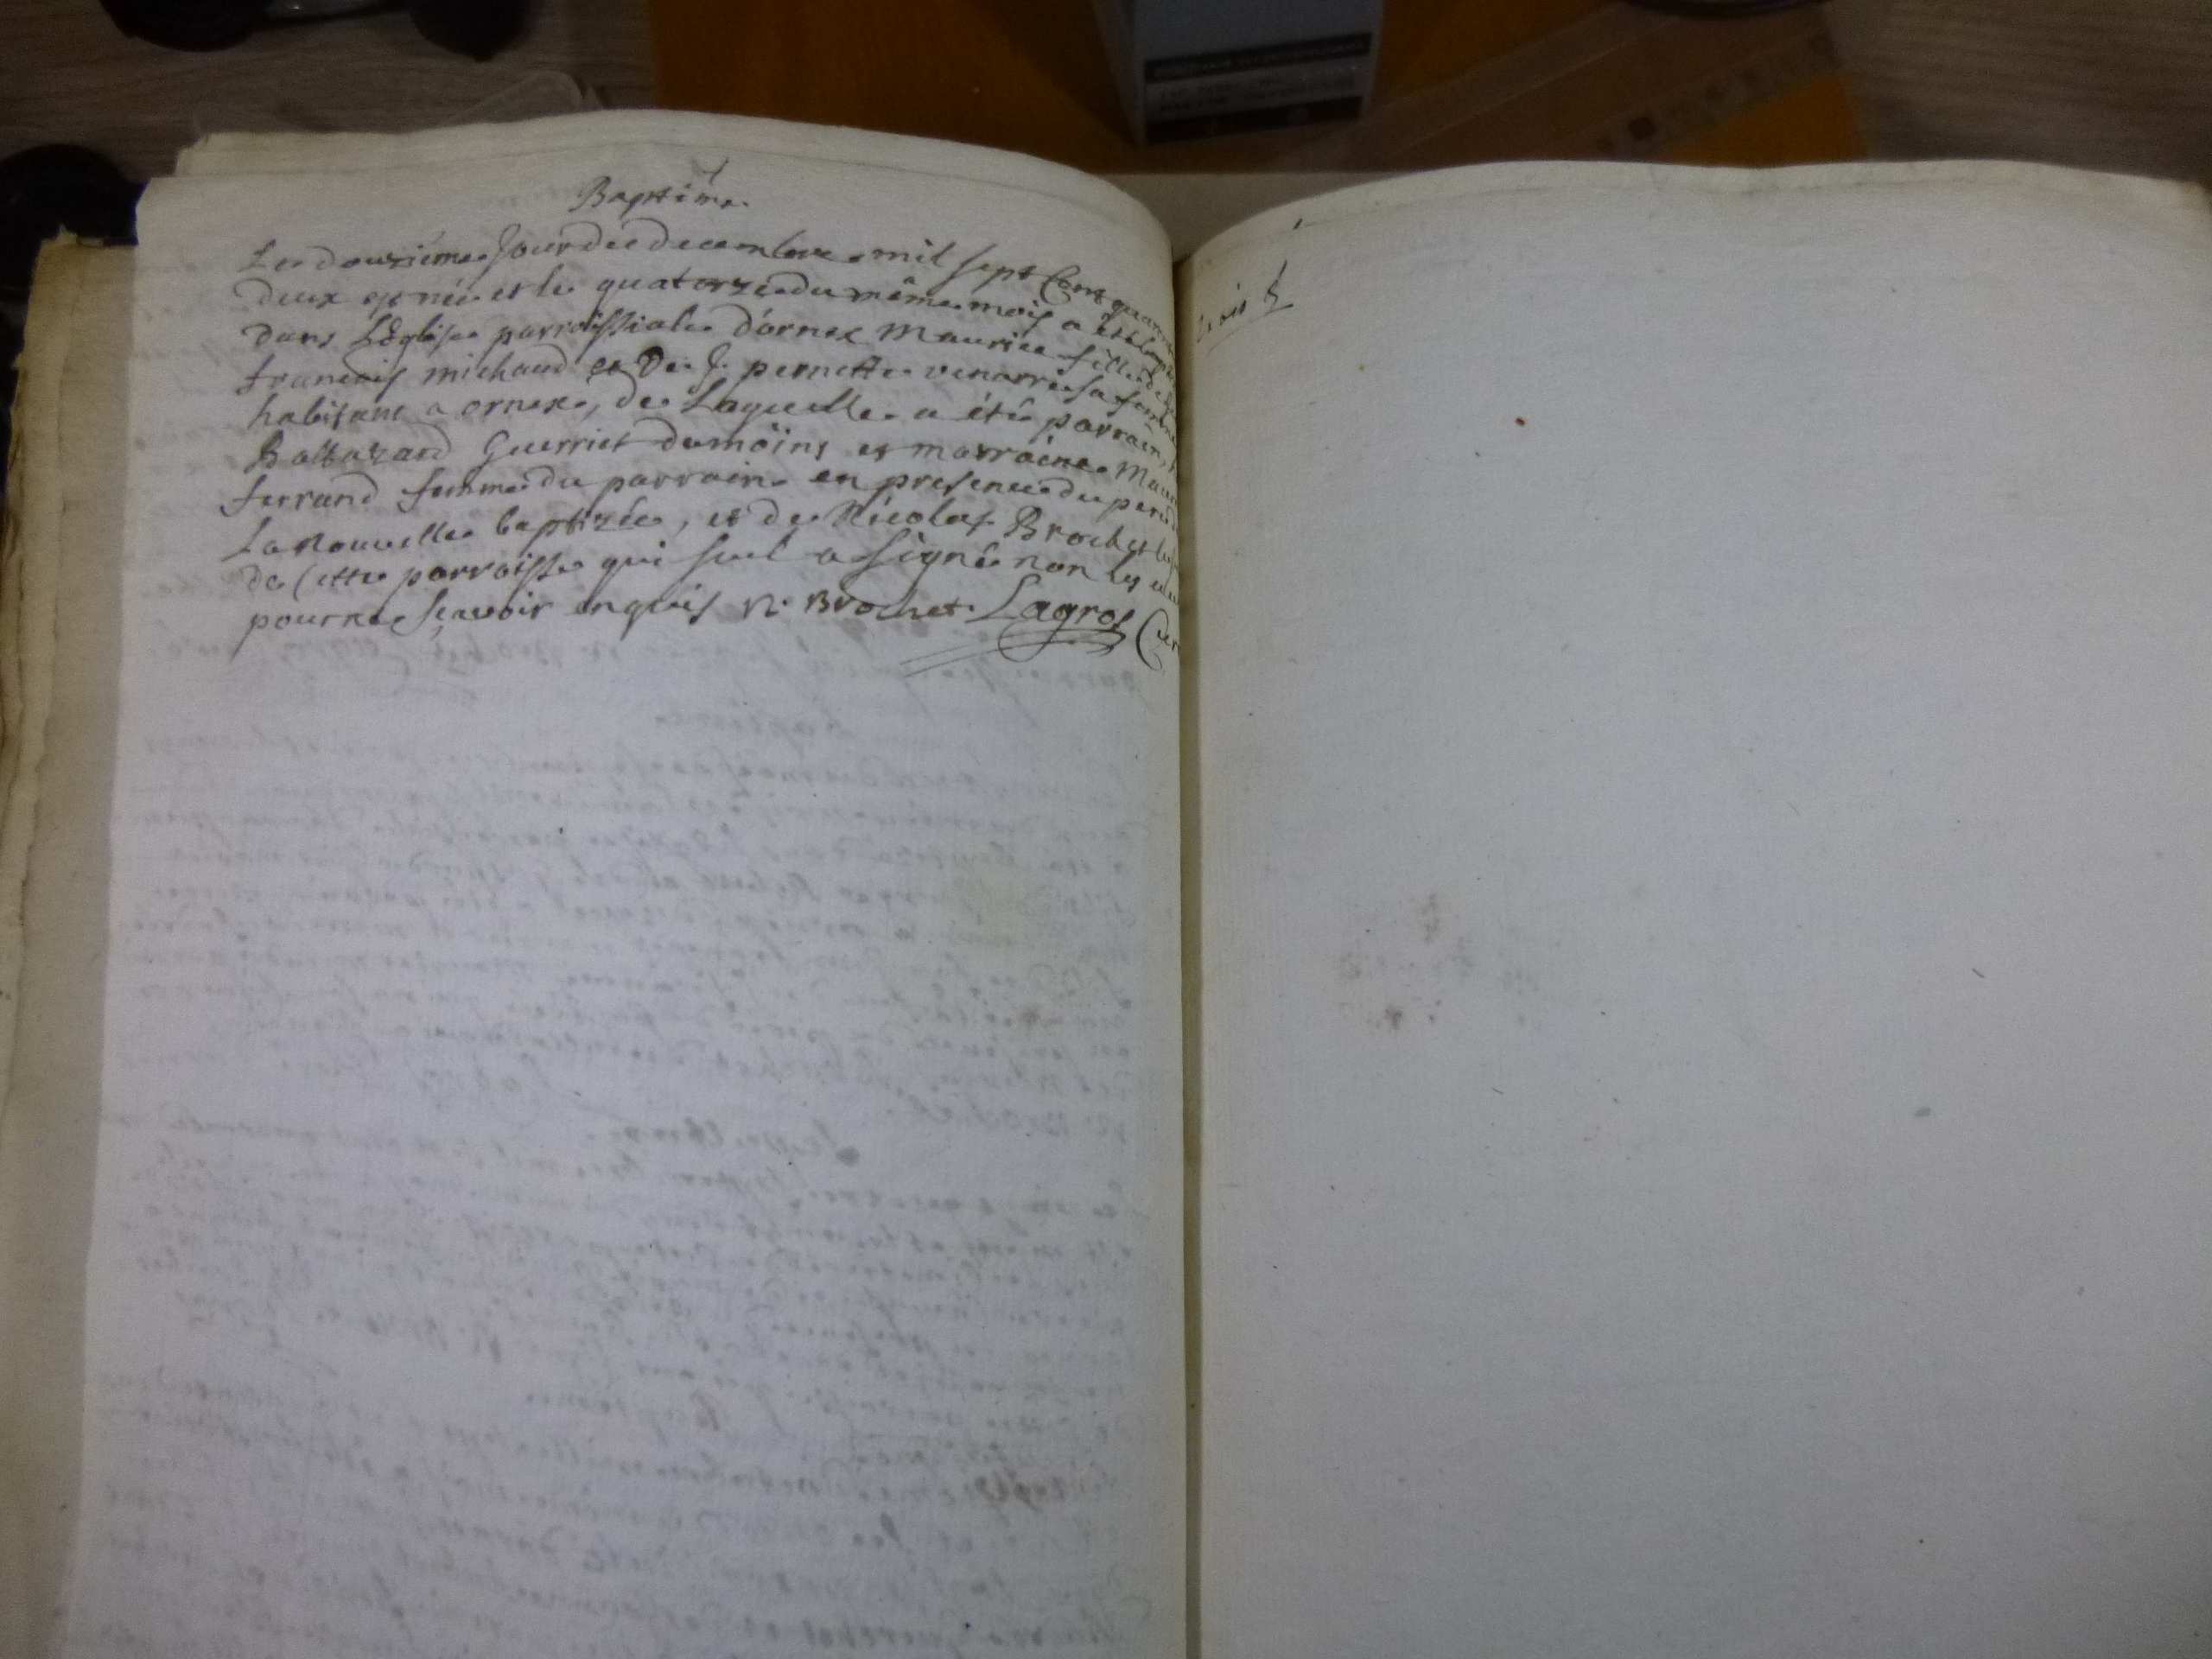 Baptême
Le douziéme Jour de decembre mil sept Cent quarante
deux est née et le quatorze du même mois a été
dans L'Eglise parroissiale d'ornex Maurise fille de
francois michaud et De J. pernette venarre sa femme
habitant a ornex, de Laquelle a été parrain
Baltazard Guerriet de möins et marraine
ferrand femme du parrain en presence du pere de
La Nouvelle baptizée, et de Nicolas Brochet
de Cette parroisse qui seul a signé non les
pour ne sçavoir enquis N. Brochet Lagros Cur